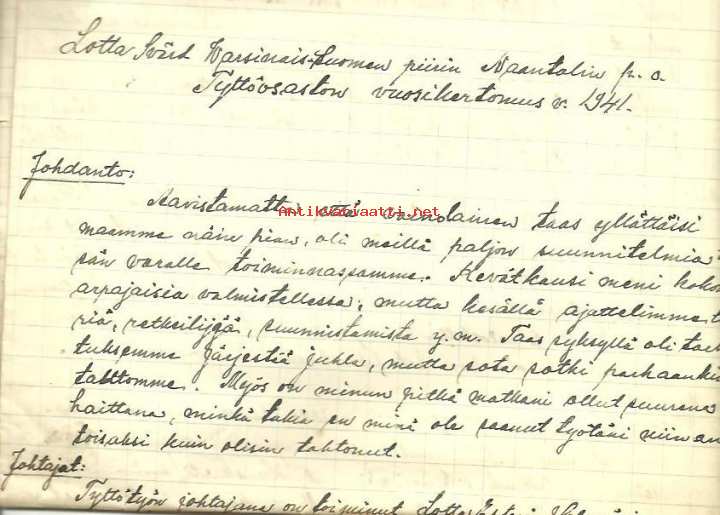 Lotta Svärd Varsinais-Suomen piirin Naantalin p. o.
Tyttöosaston vuosikertomus v. 1941.
Johdanto:
Aavistamatta että vainolainen taas yllättäisi
Antikvariaatti.net
maamme näin pian, oli meillä paljon suunnitelmia
sän varalle toiminnassamme. Kevätkausi meni koko
arpajaisia valmistellessa, mutta kesällä ajattelimme
riä, retkeilyjä, suunnistamista y.m. Taas syksyllä oli tark
tuksemme järjestää juhla, mutta sota sotki parhaankin
tahtomme. Myös on minun pitkä matkani ollut suurena
haittana, minkä takia en minä ole saanut työtäni niin an
toisaksi kuin olisin tahtonut.
Johtajat:
Tyttötyön johtajana on toiminut